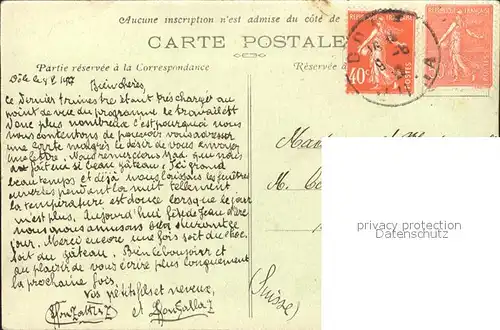 Aucune inscription n'est admise du côté de
CARTE POSTALE
Partie réservée à la Correspondance
Réservée à
RÉPUBLIQUE FRANÇAISE
40c
POSTES
Bien chères,
le dernier trimestre étant très chargés au
point de vue du programme le travail est
donc plus nombreux c'est pourquoi nous
nous contentons de pouvoir vous adresser
une carte malgré le désir de vous envoyer
une lettre. Nous remercions Mad. qui nous
fait un si beau gâteau. Ici grand
beau temps et déjà nous laissons les fenêtres
ouvertes pendant la nuit tellement
la température est douce lorsque le jour
n'est plus. Aujourd'hui fête de Jeanne d'Arc
nous nous amusons durant ce
jour. Merci encore une fois soit du choc.
soit du gâteau. Bien le bonjour et
au plaisir de vous écrire plus longuement
la prochaine fois.
Vos petits fils et neveux,
et
M.
(Suisse)
privacy protection
Datenschutz